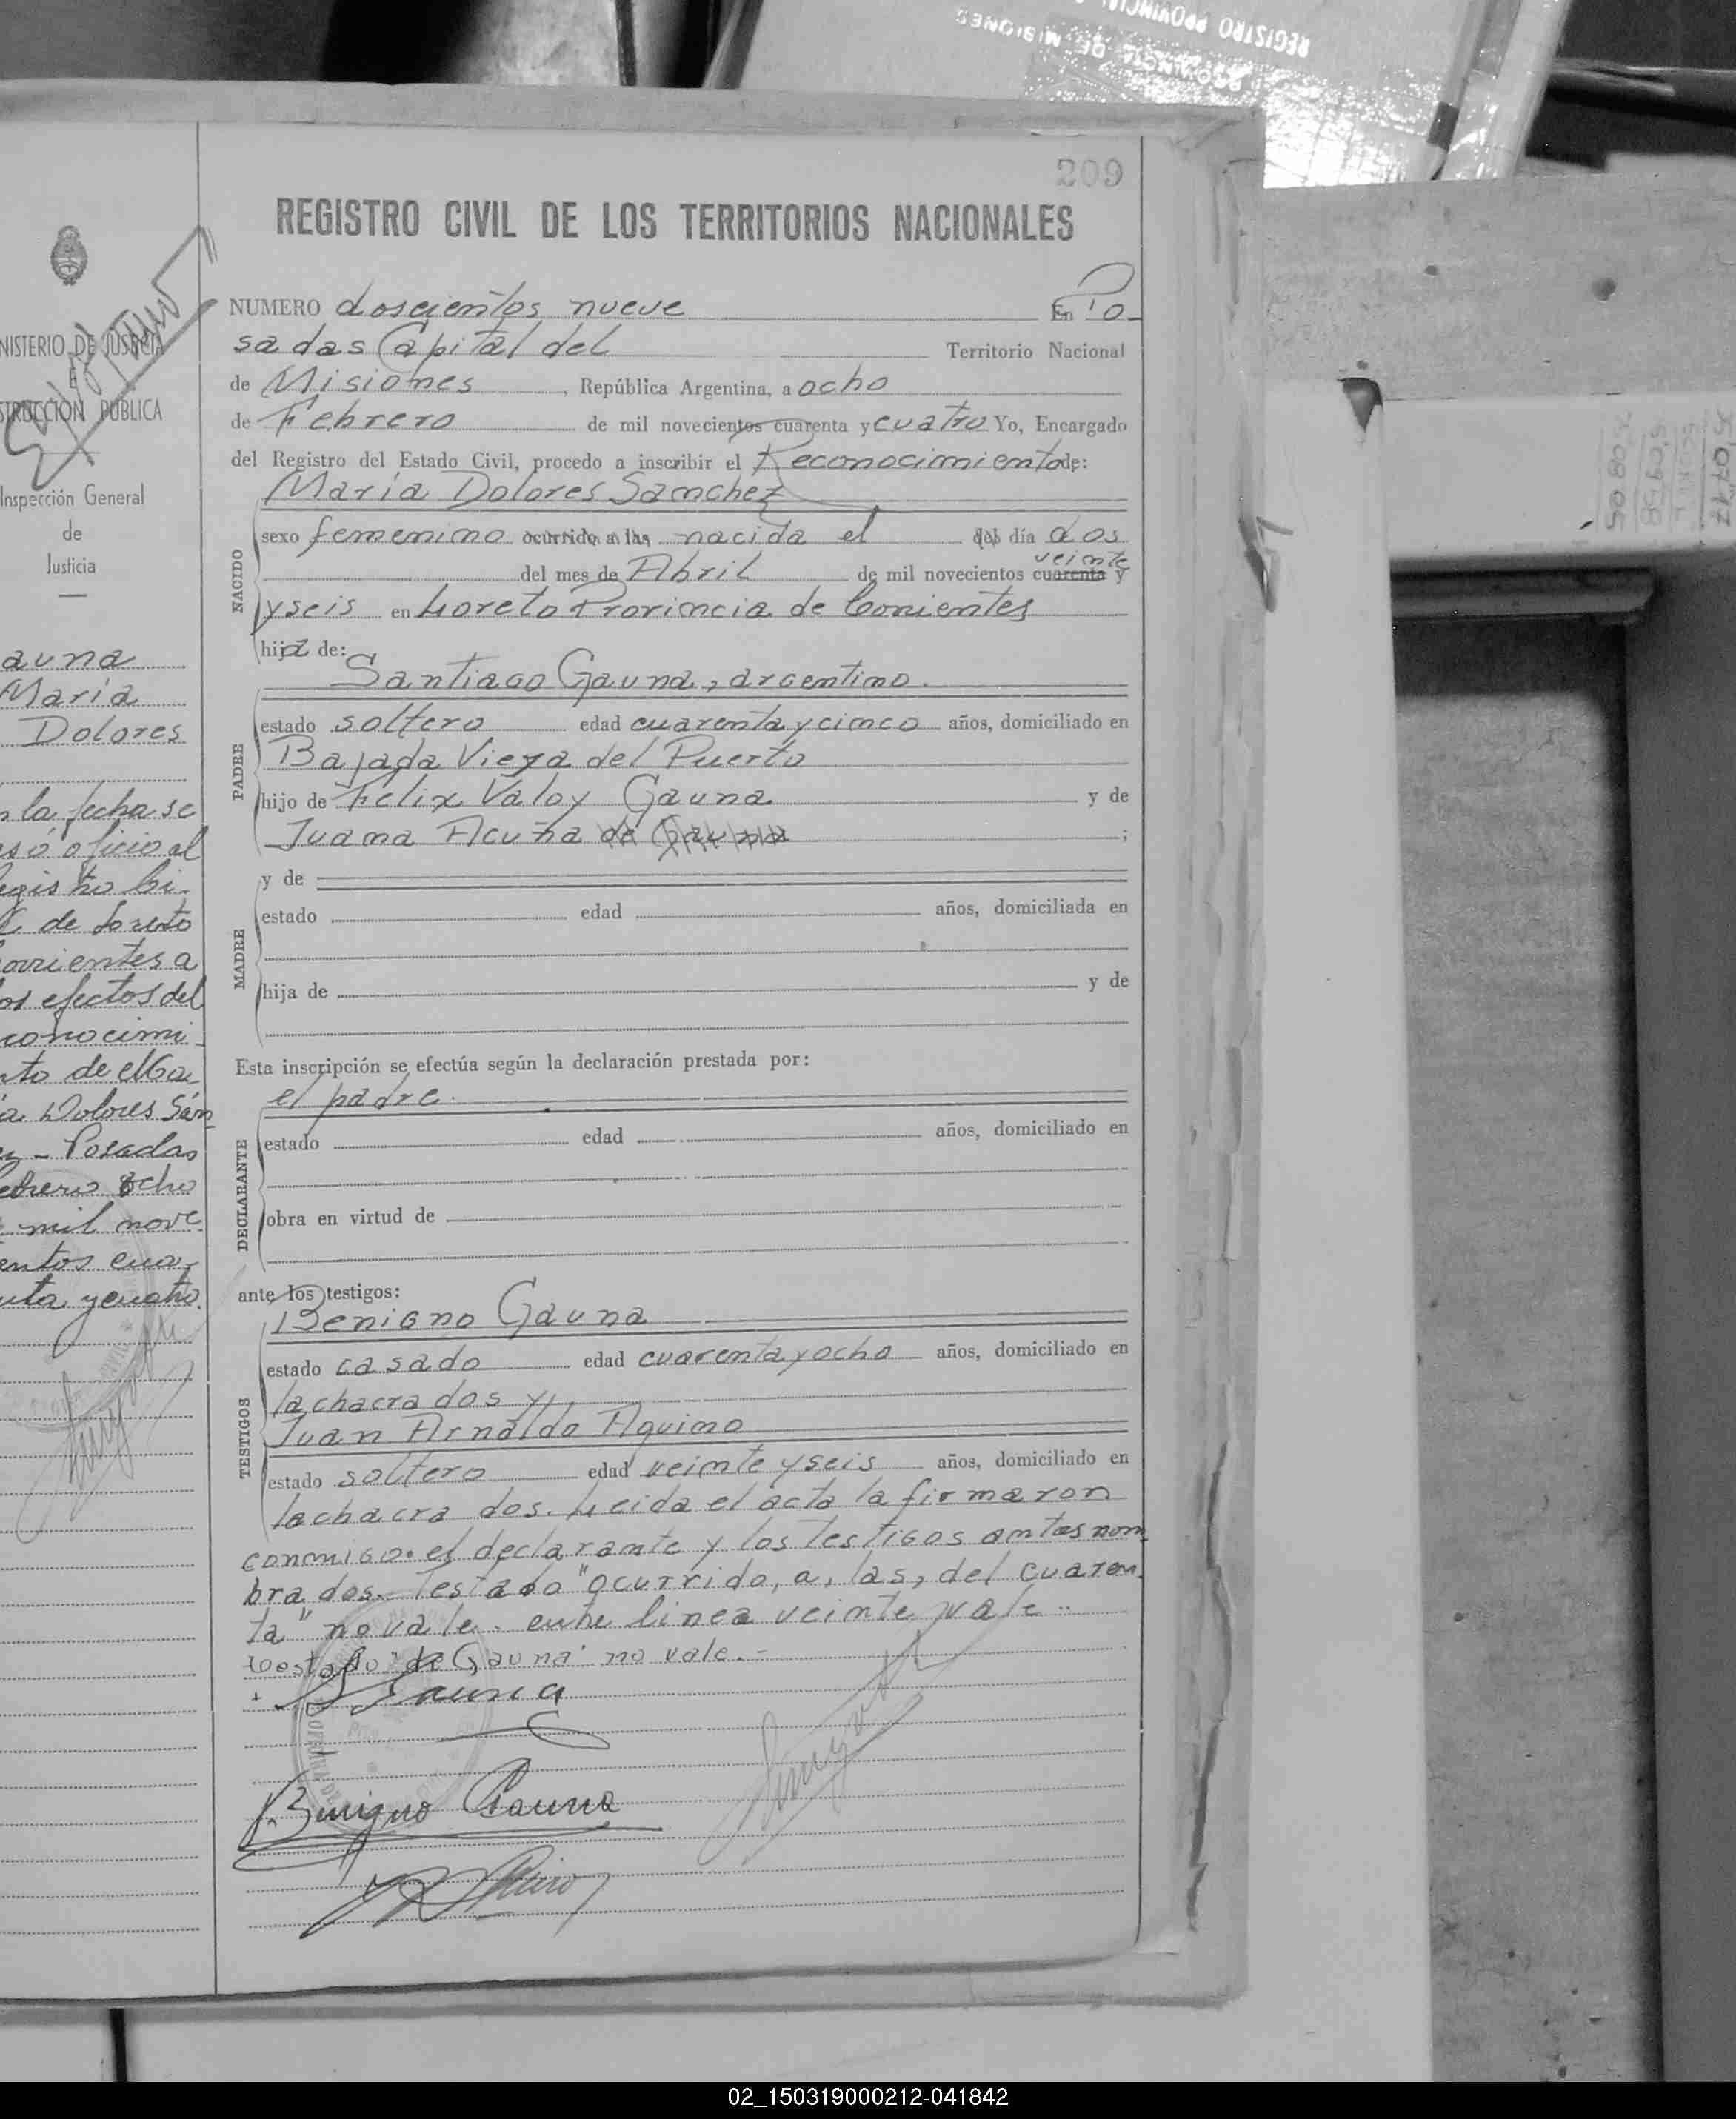 REGISTRO PROVINCIAL
PROVINCIA DE MISIONES
209
REGISTRO CIVIL DE LOS TERRITORIOS NACIONALES
NUMERO doscientos nueve En Po-
sadas Capital del Territorio Nacional
de Misiones, República Argentina, a ocho
de Febrero de mil novecientos cuarenta y cuatro Yo, Encargado
del Registro del Estado Civil, procedo a inscribir el Reconocimiento de:
María Dolores Sanchez
NACIDO
sexo femenino ocurrido a las nacida el del día dos
veinte
del mes de Abril de mil novecientos cuarenta y
y seis en Loreto Provincia de Corrientes
hija de:
Santiago Gauna, argentino.
PADRE
estado soltero edad cuarenta y cinco años, domiciliado en
Bajada Vieja del Puerto
hijo de Felix Valoy Gauna y de
Juana Acuña de Gauna ;
MADRE
y de
estado edad años, domiciliada en
hija de y de
Esta inscripción se efectúa según la declaración prestada por:
el padre.
DECLARANTE
estado edad años, domiciliado en
obra en virtud de
ante los testigos:
Benigno Gauna
TESTIGOS
estado casado edad cuarenta y ocho años, domiciliado en
la chacra dos y,
Juan Arnaldo Aquino
estado soltero edad veinte y seis años, domiciliado en
la chacra dos. Leida el acta la firmaron
conmigo. el declarante y los testigos antes nom
brados. Testado "ocurrido, a, las, del cuaren
ta" no vale. entre linea veinte vale..
testado "de Gauna" no vale.-
S Gauna
Benigno Gauna
NISTERIO DE JUSTICIA
E
STRUCCIÓN PÚBLICA
Inspección General
de
Justicia
auna
María
Dolores
n la fecha se
só oficio al
egistro Ci-
de Loreto
orrientes a
os efectos del
conocimi-
nto de Ma-
ía Dolores Sán
ez - Posadas
ebrero ocho
mil nove
entos cua-
nta y cuatro.
02_150319000212-041842